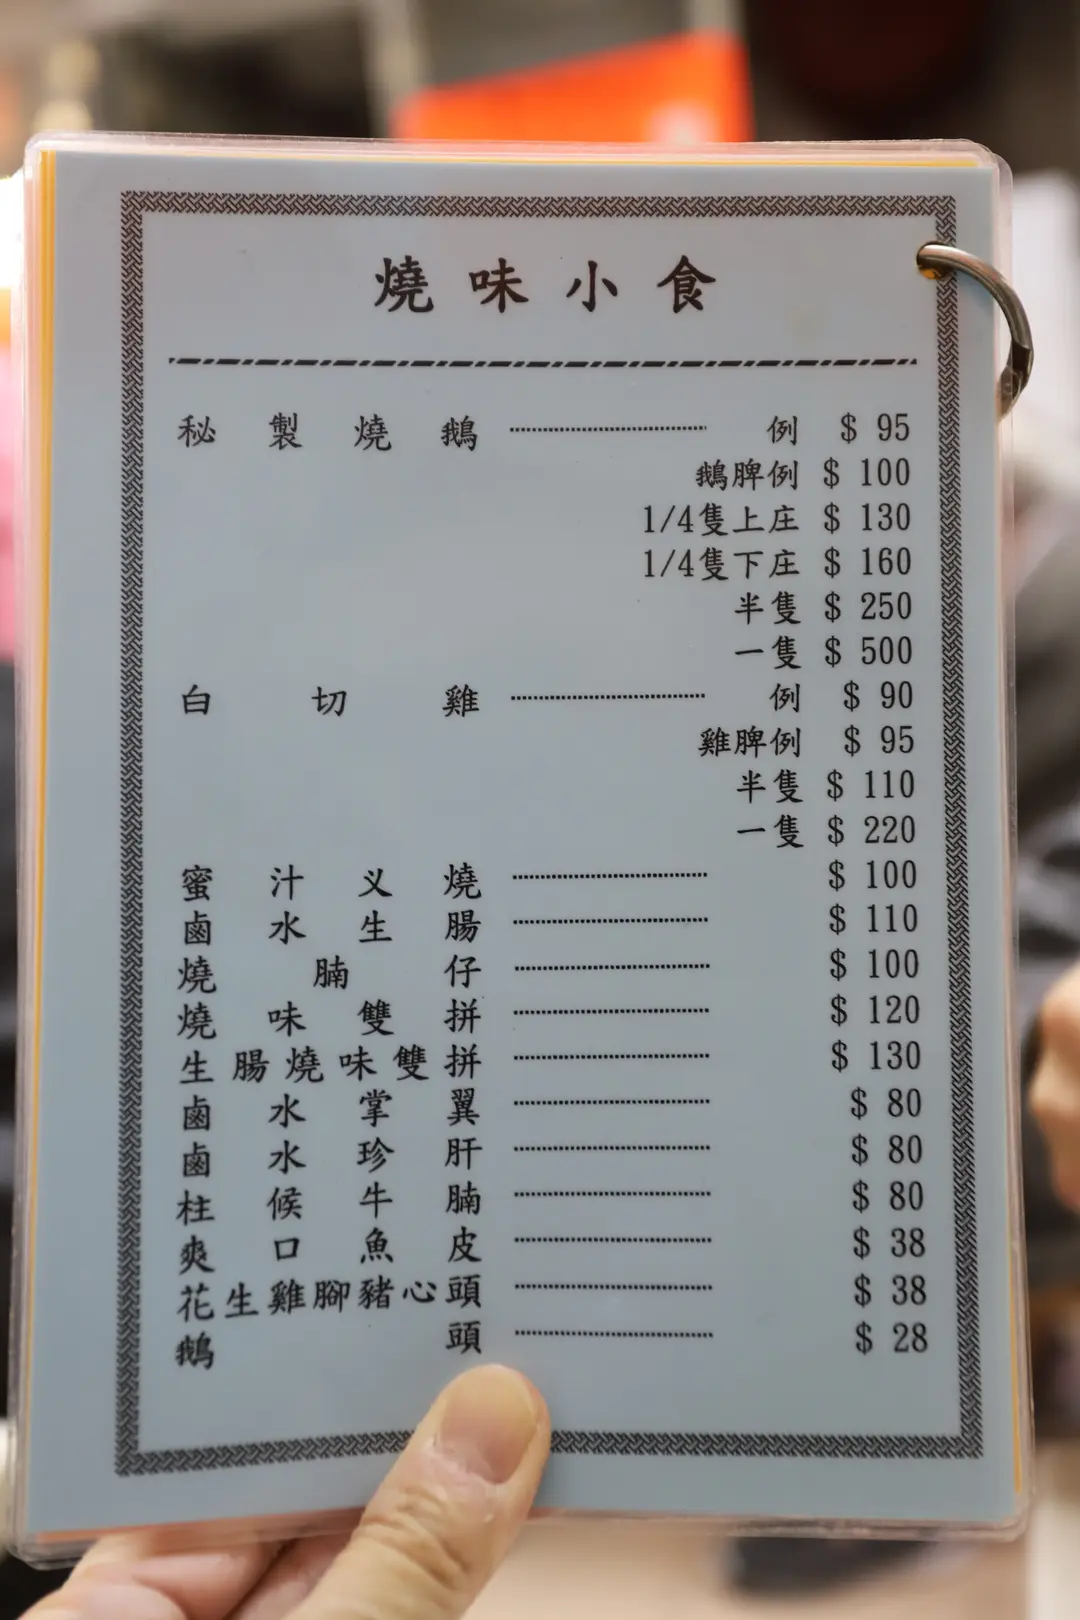 燒味小食
秘製燒鵝 例 $ 95
鵝脾例 $ 100
1/4隻上庄 $ 130
1/4隻下庄 $ 160
半隻 $ 250
一隻 $ 500
白切雞 例 $ 90
雞脾例 $ 95
半隻 $ 110
一隻 $ 220
蜜汁义燒 $ 100
鹵水生腸 $ 110
燒腩仔 $ 100
燒味雙拼 $ 120
生腸燒味雙拼 $ 130
鹵水掌翼 $ 80
鹵水珍肝 $ 80
柱候牛腩 $ 80
爽口魚皮 $ 38
花生雞腳豬心頭 $ 38
鵝頭 $ 28